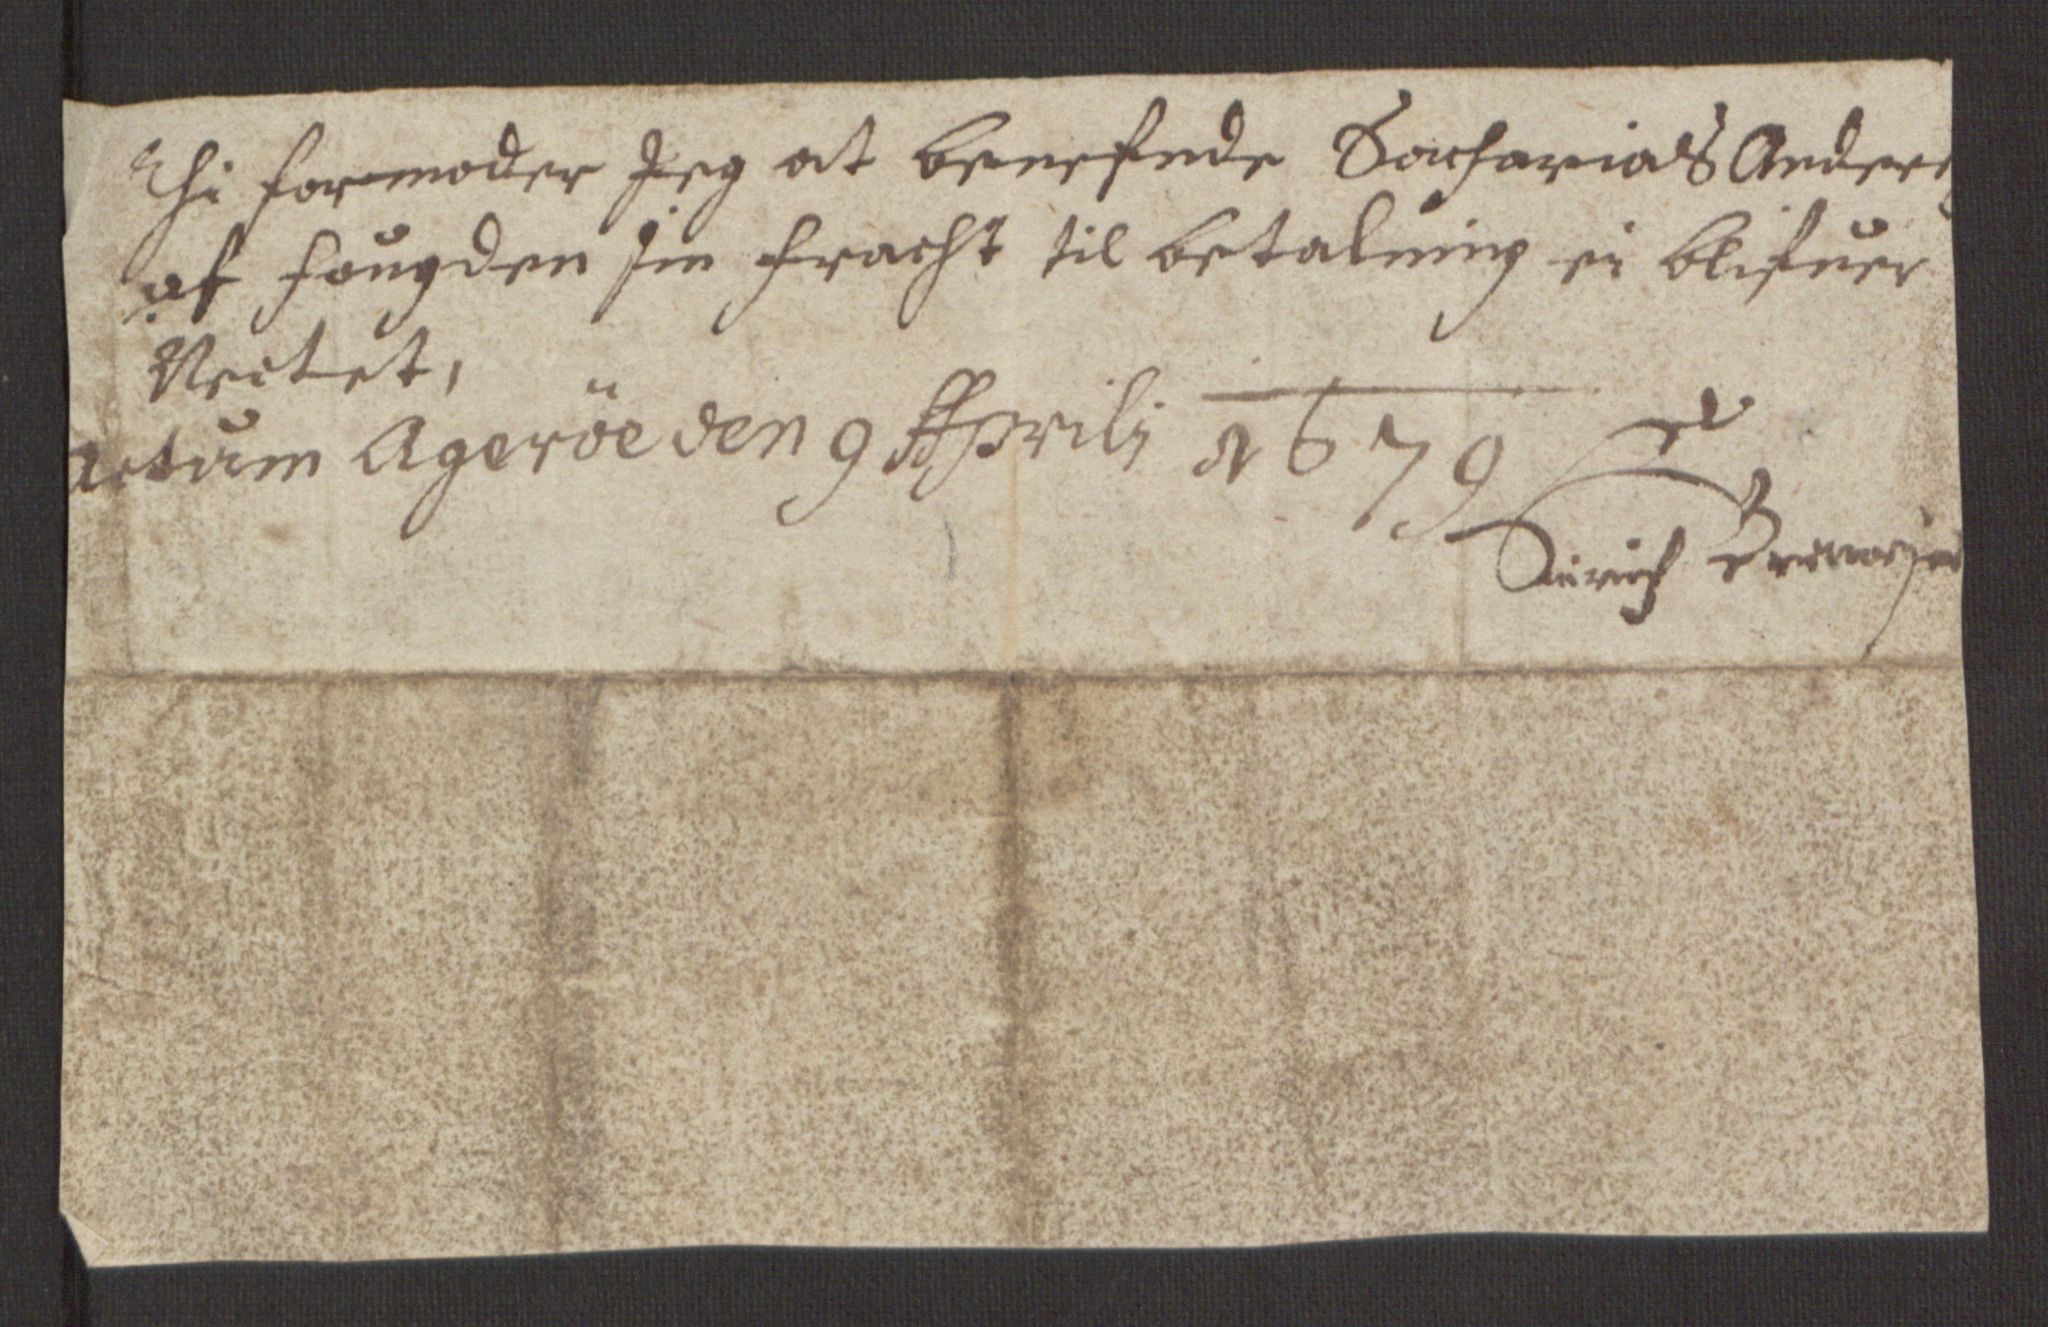 Thi formoder Jeg at benefnde Sacharias Anders
af fougden sin fracht til betalning ei blifuer
Neitet,
Actum Ageröe den 9 Aprilj 1679